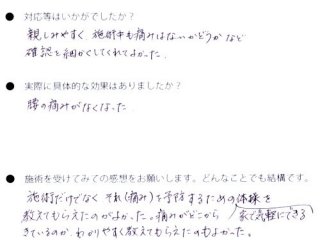 ● 対応等はいかがでしたか？
親しみやすく 施術中も痛みはないかどうかなど
確認を細かくしてくれてよかった。
● 実際に具体的な効果はありましたか？
腰の痛みがなくなった
● 施術を受けてみての感想をお願いします。どんなことでも結構です。
施術だけでなく それ(痛み)を予防するための体操を
教えてもらえたのがよかった。痛みがどこから 家で気軽にできる
きているのか、わかりやすく教えてもらえたのもよかった。